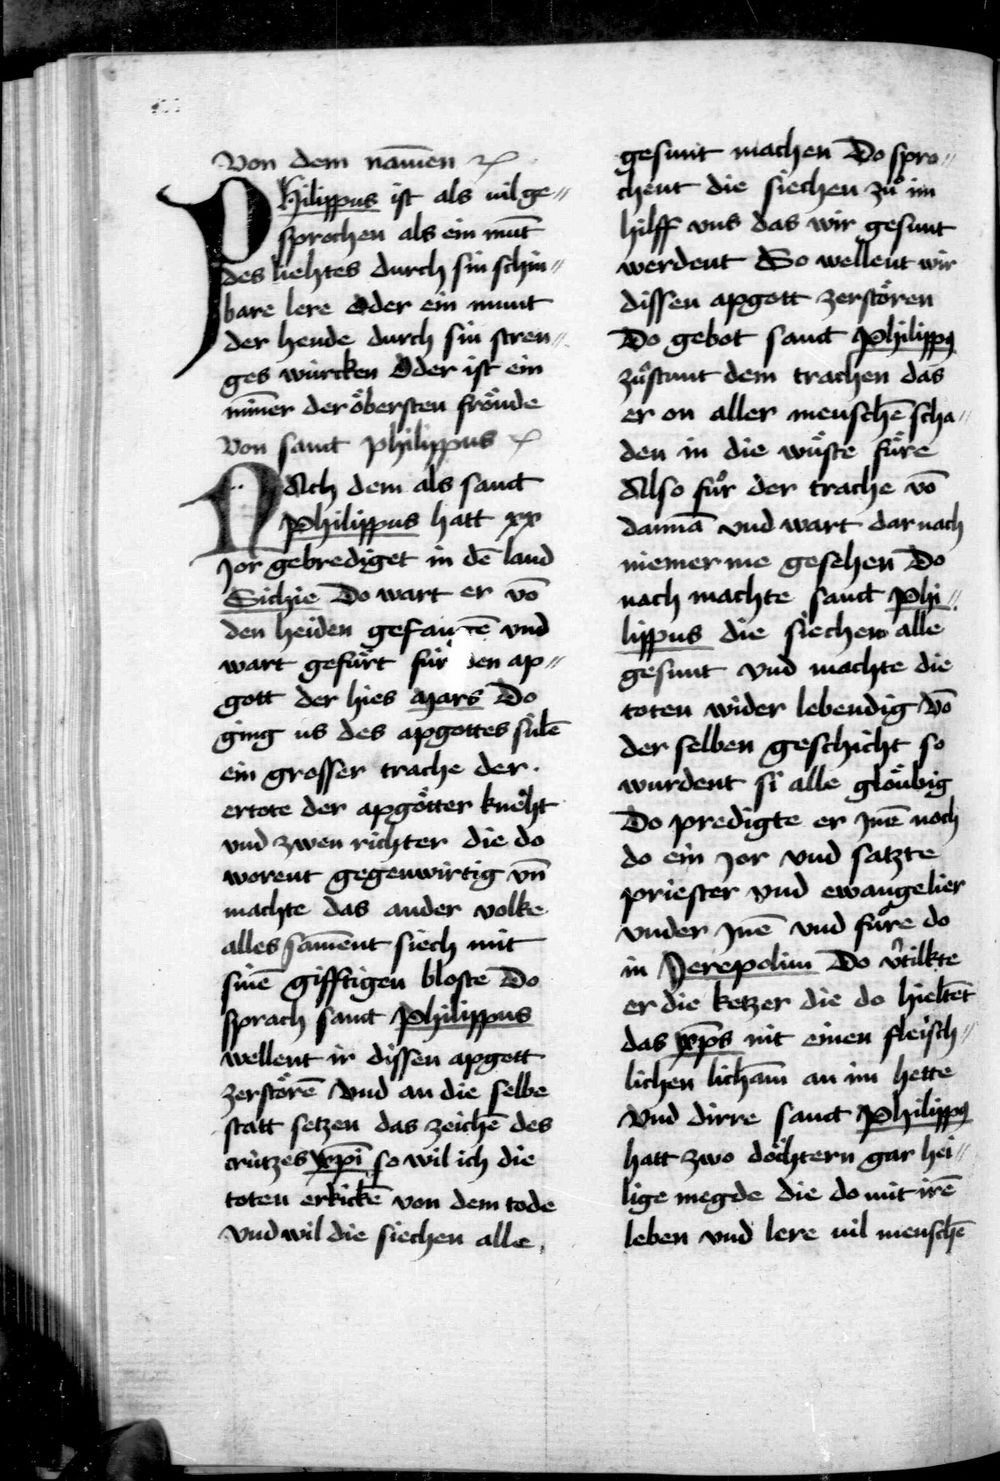 Von dem namen ꝛc
Philippus ist als uil ge⸗
sprochen als ein mūt
des liehtes durch sin schin⸗
bare lere Oder ein munt
der hende durch sin stren⸗
ges wurcken Oder ist ein
mīner der öbersten fröude
Von sant philippus ꝛc
NAch dem als sanct
Philippus hatt xx
Jor gebrediget in dē land
Sichie Do wart er vō
den heiden gefangē vnd
wart gefürt für den ap⸗
gott der hies Mars Do
ging us des apgottes sulē
ein grosser trache der
ertote der apgötter kneht
vnd zwen richter die do
worent gegenwirtig vn̄
machte das ander volke
alles samēnt siech mit
sinē gifftigen bloste Do
sprach sant Philippus
wellent ir dissen apgott
zerstörē Vnd an die selbe
statt setzen das zeichē des
crützes xp̄i so wil ich die
toten erkickē von dem tode
Vnd wil die siechen alle
gesunt machen Do spro⸗
chent die siechen zuͦ im
hilff vns das wir gesunt
werdent So wellent wir
dissen apgott zerstören
Do gebot sanct Philippꝰ
zuͦstunt dem trachen das
er on aller menschē scha⸗
den in die wuͤste fuͤre
Also fuͦr der trache vō
dannā vnd wart dar nach
niemer me gesehen Do
nach machte sanct Phi⸗
lippus die siechen alle
gesunt vnd machte die
toten wider lebendig Vō
der selben geschicht so
wurdent si alle glöubig
Do predigte er Jnē noch
do ein Jor vnd satzte
priester vnd ewangelier
vnder Jnē vnd fuͤre do
in Jerepolim Do v̓tilkte
er die ketzer die do hieltēt
das xp̄s nit einen fleisch⸗
lichen lichā an im hette
Vnd dirre sanct Philippꝰ
hatt zwo döchtern gar hei⸗
lige megde die do mit irē
leben vnd lere uil menschē